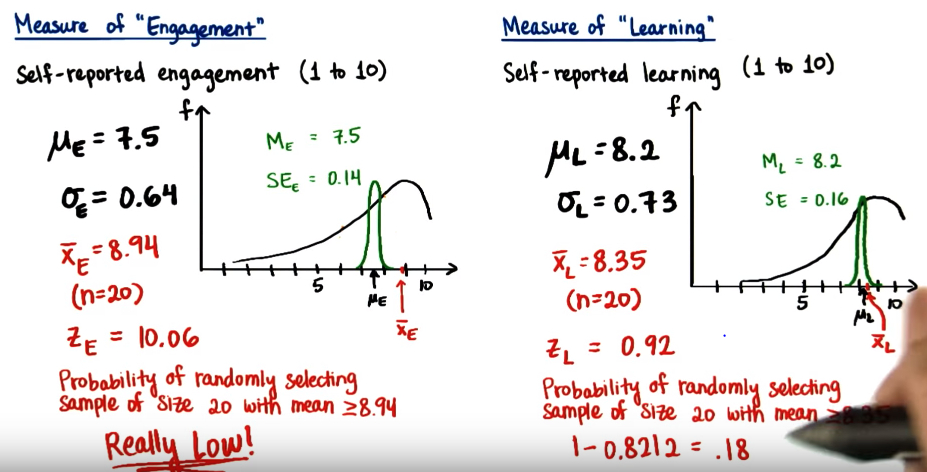 Measure of "Engagement"
Self-reported engagement (1 to 10)
f
μE = 7.5
σE = 0.64
ME = 7.5
SEE = 0.14
x̄E = 8.94
(n=20)
5
10
μE
x̄E
ZE = 10.06
Probability of randomly selecting
sample of size 20 with mean ≥8.94
Really Low!
Measure of "Learning"
Self-reported learning (1 to 10)
f
μL = 8.2
σL = 0.73
ML = 8.2
SE = 0.16
x̄L = 8.35
(n=20)
5
10
μL
x̄L
ZL = 0.92
Probability of randomly selecting
sample of size 20 with mean ≥8.35
1-0.8212 = .18